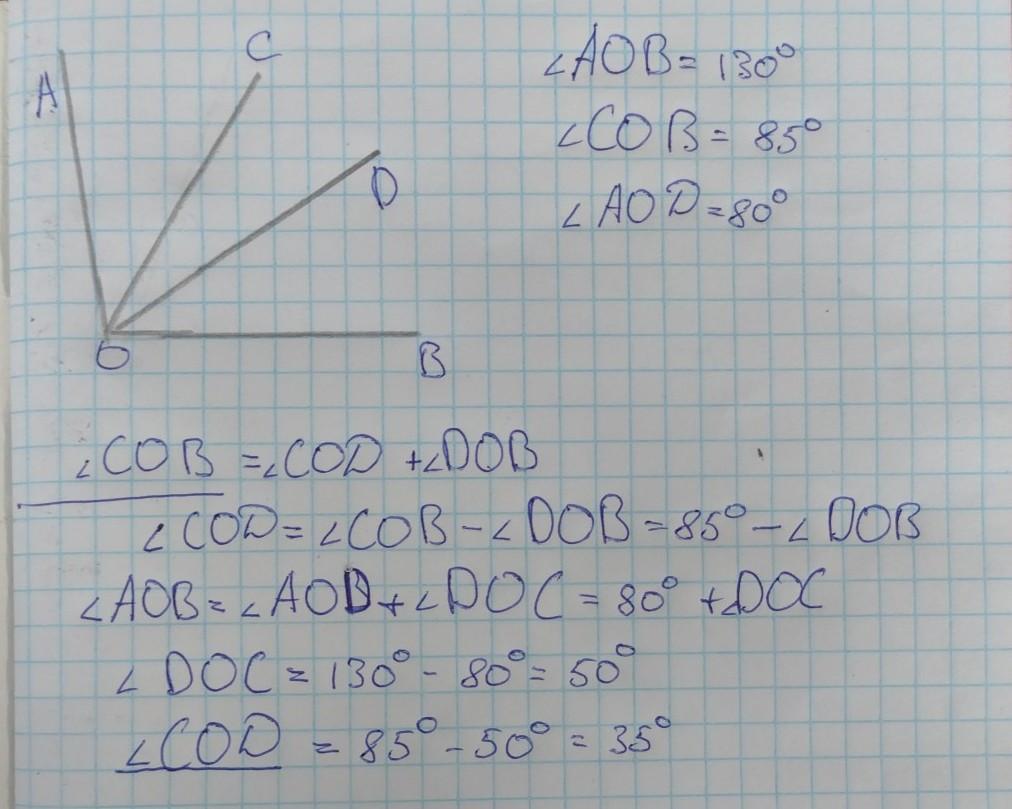 A
C
D
O
B
∠AOB = 130°
∠COB = 85°
∠AOD = 80°
∠COB = ∠COD + ∠DOB
∠COD = ∠COB - ∠DOB = 85° - ∠DOB
∠AOB = ∠AOD + ∠DOC = 80° + ∠DOC
∠DOC = 130° - 80° = 50°
∠COD = 85° - 50° = 35°